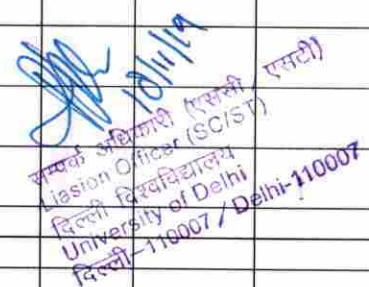 18/11/19
सम्पर्क अधिकारी (एससी / एसटी)
Liasion Officer (SC/ST)
दिल्ली विश्वविद्यालय
University of Delhi
दिल्ली-110007 / Delhi-110007